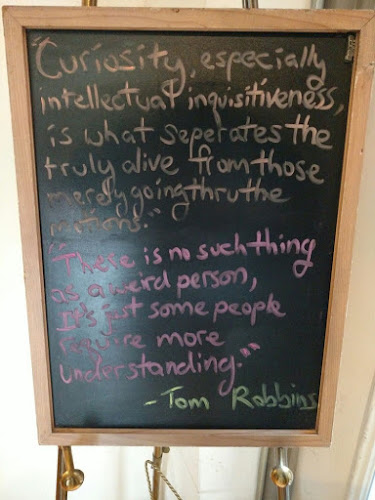 "Curiosity, especially
intellectual inquisitiveness,
is what seperates the
truly alive from those
merely going thru the
motions."
"There is no such thing
as a weird person,
It's just some people
require more
understanding.""
-Tom Robbins